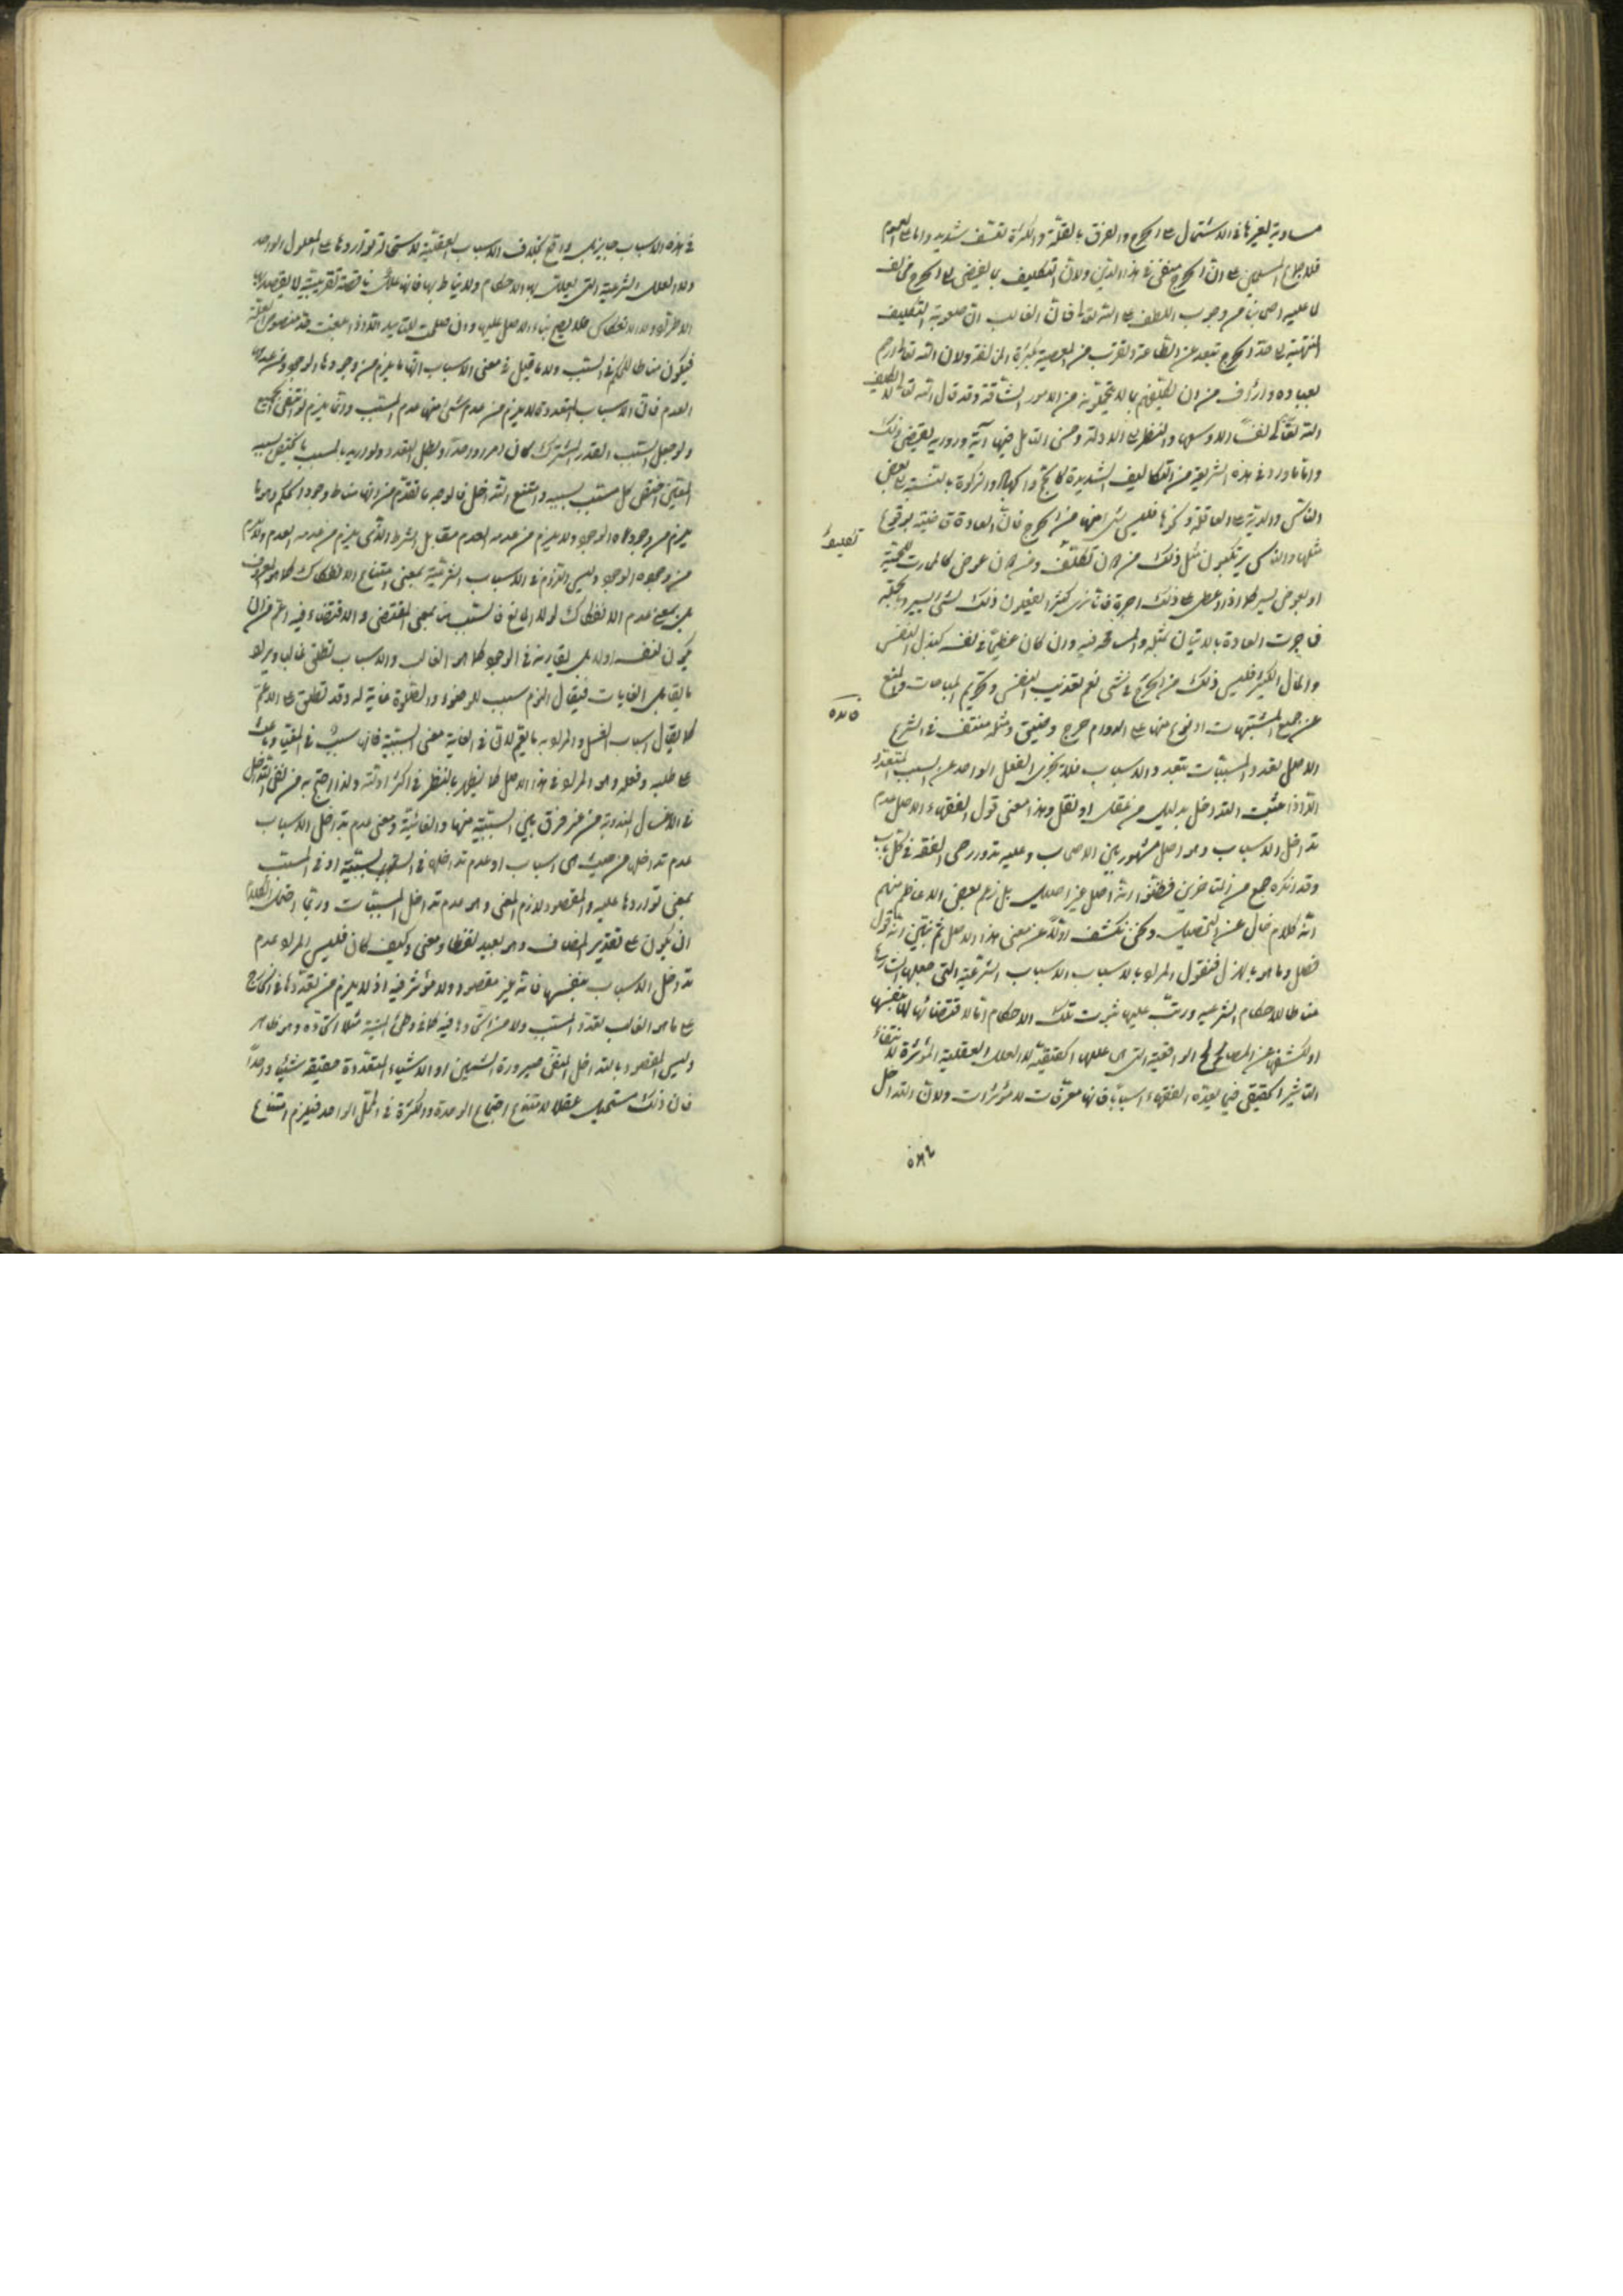 مساوية لغيرها في الاشتمال على الحرج والفرق بالقلّة والكثرة تعسّف شديد واما على العموم
فلاجماع المسلمين على ان الحرج منفى في هذا الدين ولان التكليف بما يفضى الى الحرج مخالف
لما عليه اصحابنا من وجوب اللطف على الله تعالى فان الغالب ان صعوبة التكليف
المنتهية الى حد الحرج تبعد عن الطاعة وتقرب من المعصية بكثرة المخالفة ولان الله تعالى ارحم
بعباده وارأف من ان يكلفهم ما لا يتحملونه من الامور الشاقة وقد قال الله تعالى لا يكلف
الله نفسا الا وسعها والنظر الى الادلة وحسن التامل فيها آية ورواية يقتضى ذلك
واما ما ورد في هذه الشريعة من التكاليف الشديدة كالحج والجهاد والزكوة بالنسبة الى بعض
الناس والدية على العاقلة ونحوها فليس شئ منها من الحرج فان العادة قاضية بوقوع
مثلها والناس يرتكبون مثل ذلك من دون تكليف ومن دون عوض كالمحارب للحمية
او بعوض يسير كما اذا اعطى على ذلك اجرة فانا نرى كثيرا يفعلون ذلك لشئ يسير وبالجملة
فما جرت العادة بالاتيان بمثله والمسامحة فيه وان كان عظيما في نفسه كبذل النفس
والمال الكثير فليس ذلك من الحرج في شئ نعم تعذيب النفس وتحريم المباحات والمنع
عن جميع المشتهيات او نوع منها على الدوام حرج وضيق ومثله منتف في الشرع
الاصل تعدد المسببات بتعدد الاسباب فلا يجزى الفعل الواحد عن السبب المتعدد
الا اذا ثبت التداخل بدليل من عقل او نقل وهذا معنى قول الفقهاء الاصل عدم
تداخل الاسباب وهو اصل مشهور بين الاصحاب وعليه تدور رحى الفقه في كل باب
وقد انكره جمع من المتاخرين فظنوا انه اصل غير اصيل بل زعم بعض الاعاظم منهم
انه كلام خال عن التحصيل ونحن نكشف اولا عن معنى هذا الاصل ثم نبين انه قول
فصل وما هو بالهزل فنقول المراد بالاسباب الاسباب الشرعية التى جعلها الشارع
مناطا للاحكام الشرعية ورتب عليها ثبوت تلك الاحكام اما لاقتضائها لها بنفسها
او لكشفها عن المصالح الواقعية التى هى عللها الحقيقية لا العلل العقلية المؤثرة لانتفاء
التاثير الحقيقى فيما يعده الفقهاء اسبابا فانها معرفات لا مؤثرات ولان التداخل
في هذه الاسباب جايز بل واقع بخلاف الاسباب العقلية لاستحالة تواردها على المعلول الواحد
ولا العلل الشرعية التى يعلل بها الاحكام ولا يناط بها فانها علل ناقصة تقريبية لا يقصد بها
الاطراد ولا الانعكاس فلا يصح بناء الاصل عليها
فيكون مناطا للحكم في السبب ولا ما قيل في معنى الاسباب انها ما يلزم من وجودها الوجود ومن عدمها
العدم فان الاسباب المتعددة لا يلزم من عدم شئ منها عدم المسبب وانما يلزم لو انتفى الجميع
ولو جعل السبب القدر المشترك كان امرا واحدا وبطل التعدد ولو اريد بالمسبب ما يختص بسببه
المعين اختص كل مسبب بسببه وامتنع التداخل فالوجه ما تقدم من انها مناط وجود الحكم وهو ما
يلزم من وجوده الوجود ولا يلزم من عدمه العدم مقابل الشرط الذى يلزم من عدمه العدم ولا يلزم
من وجوده الوجود وليس اللزوم في الاسباب الشرعية بمعنى امتناع الانفكاك كما هو المعروف
بل بمعنى عدم الانفكاك لولا المانع فالسبب هنا بمعنى المقتضى والاقتضاء فيه اعم من ان
يكون لنفسه او لما يقارنه في الوجود كما هو الغالب والاسباب تطلق غالبا ويراد
ما يقابل الغايات فيقال النوم سبب للوضوء والصلوة غاية له وقد تطلق على الاعم
كما يقال اسباب الغسل والمراد به ما يعم
على طلبه وفعله وهو المراد في هذا الاصل كما يظهر بالنظر في اكثر ادلته ولذا احتج به من نفى التداخل
في الاغسال المندوبة من غير فرق بين السببية منها والغائية ومعنى عدم تداخل الاسباب
عدم تداخلها من حيث هى اسباب او عدم تداخلها في السببية او في المسبب
بمعنى تواردها عليه والمقصود لازم المعنى وهو عدم تداخل المسببات وربما احتمل الكلام
ان يكون على تقدير المضاف وهو بعيد لفظا ومعنى وكيف كان فليس المراد عدم
تداخل الاسباب بنفسها فانه غير مقصود ولا مؤثر فيه اذ لا يلزم من تعددها في الخارج
على ما هو الغالب تعدد المسبب ولا من اتحادها فيه كما في وطئ الميتة مثلا اتحاده وهو ظاهر
وليس المقصود بالتداخل المنفى صيرورة الشيئين او الاشياء المتعددة حقيقة شيئا واحدا
فان ذلك مستحيل عقلا لامتناع اجتماع الوحدة والكثرة في المحل الواحد فيلزم امتناع